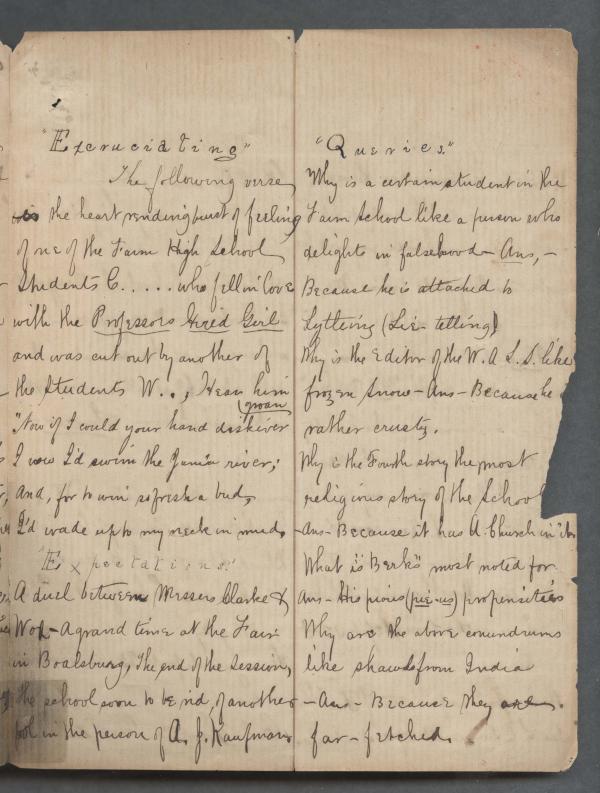 1
"Excruciating"
The following verse
is the heart rending burst of feeling
of one of the Farm High School
Students C..... who fell in love
with the Professors Hired Girl
and was cut out by another of
the Students W.., Hear him
groan
"Now if I could your hand diskiver
I vow I'd swim the Junia river,
And, for to win so fresh a bud,
I'd wade up to my neck in mud.
"Expectations"
A duel between Messers Clarke &
Wol - A grand time at the Fair
in Boalsburg, The end of the Session,
the school soon to be rid, of another
in the person of A. J. Kaufman
"Queries."
Why is a certain student in the
Farm School like a person who
delights in falsehood - Ans, -
Because he is attached to
Lytteing (Lie-telling)
Why is the Editor of the W. A L. S. like
frozen snow - Ans - Because he
rather crusty.
Why is the Fourth story the most
religious story of the School
- Ans - Because it has A. Church in it
What is "Berks" most noted for
Ans - His pious (pie-us) propensities
Why are the above conundrums
like shawls from India
- Ans - Because they are
far-fetched.